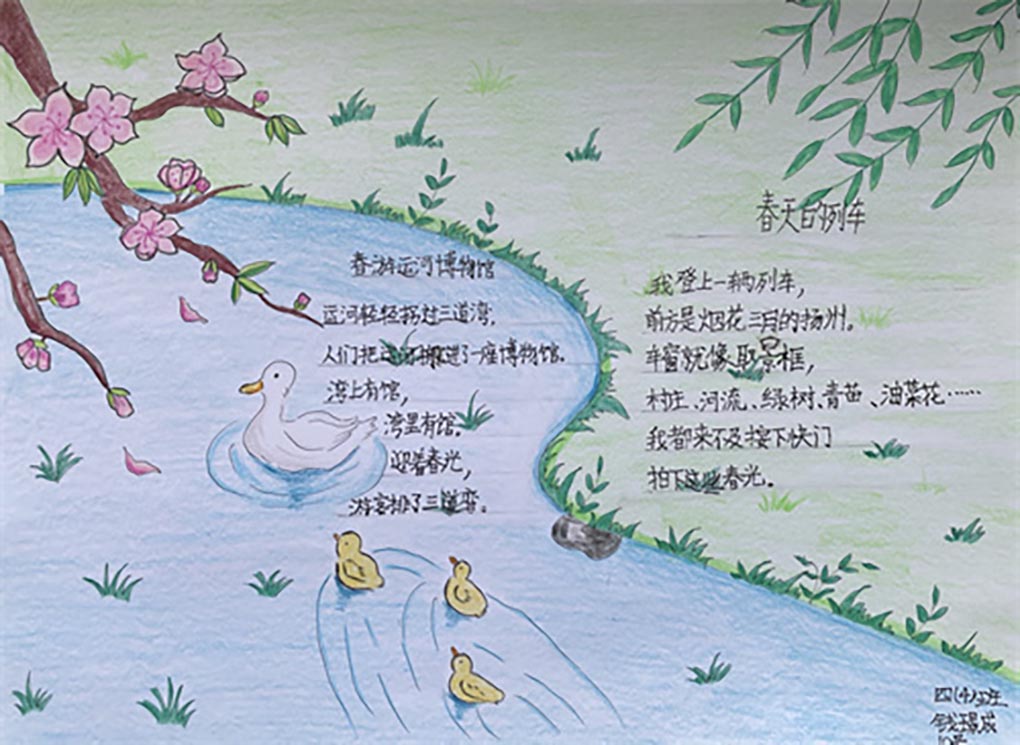 春游运河博物馆
运河轻轻拐过三道湾，
人们把运河搬进了一座博物馆。
湾上有馆，
湾里有馆。
迎着春光，
游客排了三道弯。
春天的列车
我登上一辆列车，
前方是烟花三月的扬州。
车窗就像取景框，
村庄、河流、绿树、青苗、油菜花……
我都来不及按下快门
拍下这些春光。
四（4）班
钱